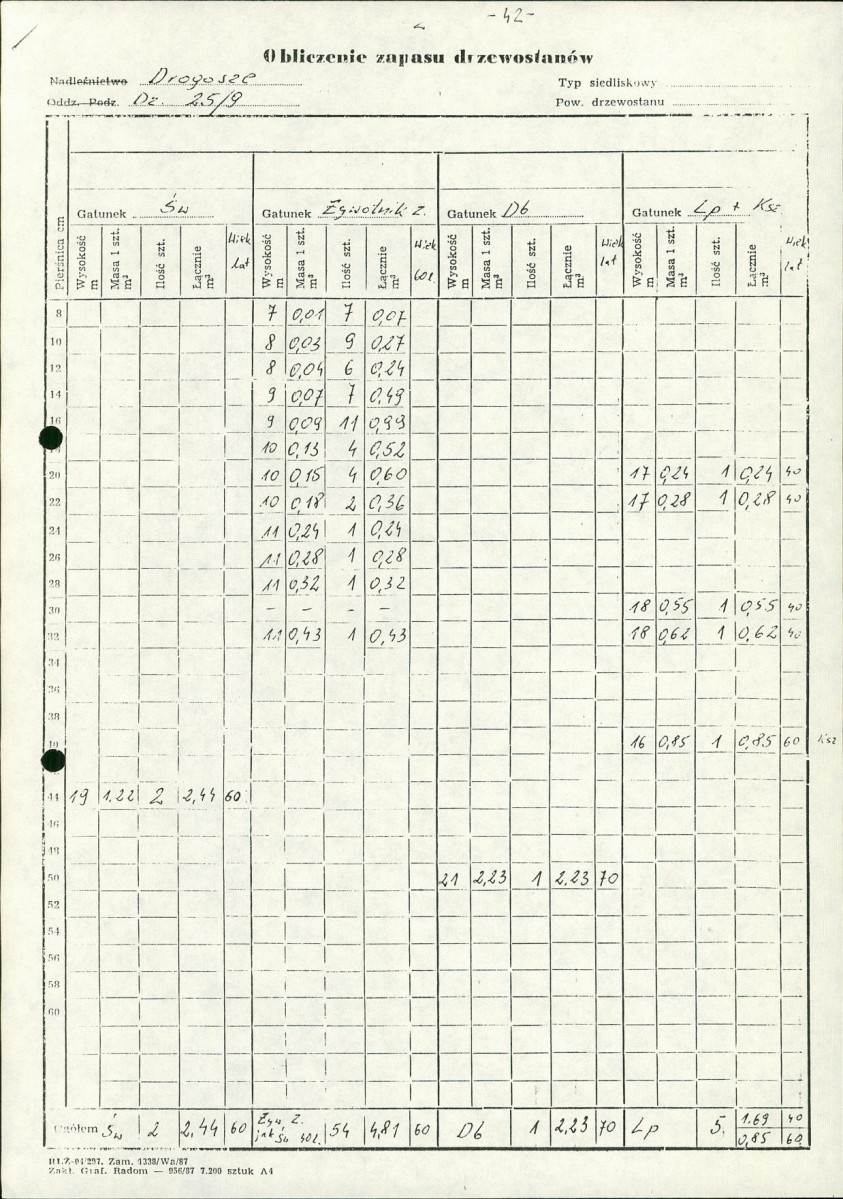 - 42 -
Obliczenie zapasu drzewostanów
Nadleśnictwo Drogosze
Typ siedliskowy
Oddz. Podz. Dz. 25/9
Pow. drzewostanu
Gatunek Św Gatunek Żywotnik z. Gatunek Db Gatunek Lp + Ksz
Pierśnica cm Wysokość m Masa 1 szt. m³ Ilość szt. Łącznie m³ Wiek lat Wysokość m Masa 1 szt. m³ Ilość szt. Łącznie m³ Wiek 60 l. Wysokość m Masa 1 szt. m³ Ilość szt. Łącznie m³ Wiek lat Wysokość m Masa 1 szt. m³ Ilość szt. Łącznie m³ Wiek lat
8 7 0,01 7 0,07
10 8 0,03 9 0,27
12 8 0,04 6 0,24
14 9 0,07 7 0,49
16 9 0,09 11 0,99
10 0,13 4 0,52
20 10 0,15 4 0,60 17 0,24 1 0,24 40
22 10 0,18 2 0,36 17 0,28 1 0,28 40
24 11 0,24 1 0,24
26 11 0,28 1 0,28
28 11 0,32 1 0,32
30 - - - - 18 0,55 1 0,55 40
32 11 0,43 1 0,43 18 0,62 1 0,62 40
34
36
38
40 16 0,85 1 0,85 60 Ksz
44 19 1,22 2 2,44 60
46
48
50 21 2,23 1 2,23 70
52
54
56
58
60
Ogółem Św 2 2,44 60 Żyw. z. jak Św 40 l. 54 4,81 60 Db 1 2,23 70 Lp 5. 1.69 40
0,85 60
RLZ-04/297. Zam. 1338/Wa/87
Zakł. Graf. Radom — 956/87 7.200 sztuk A4